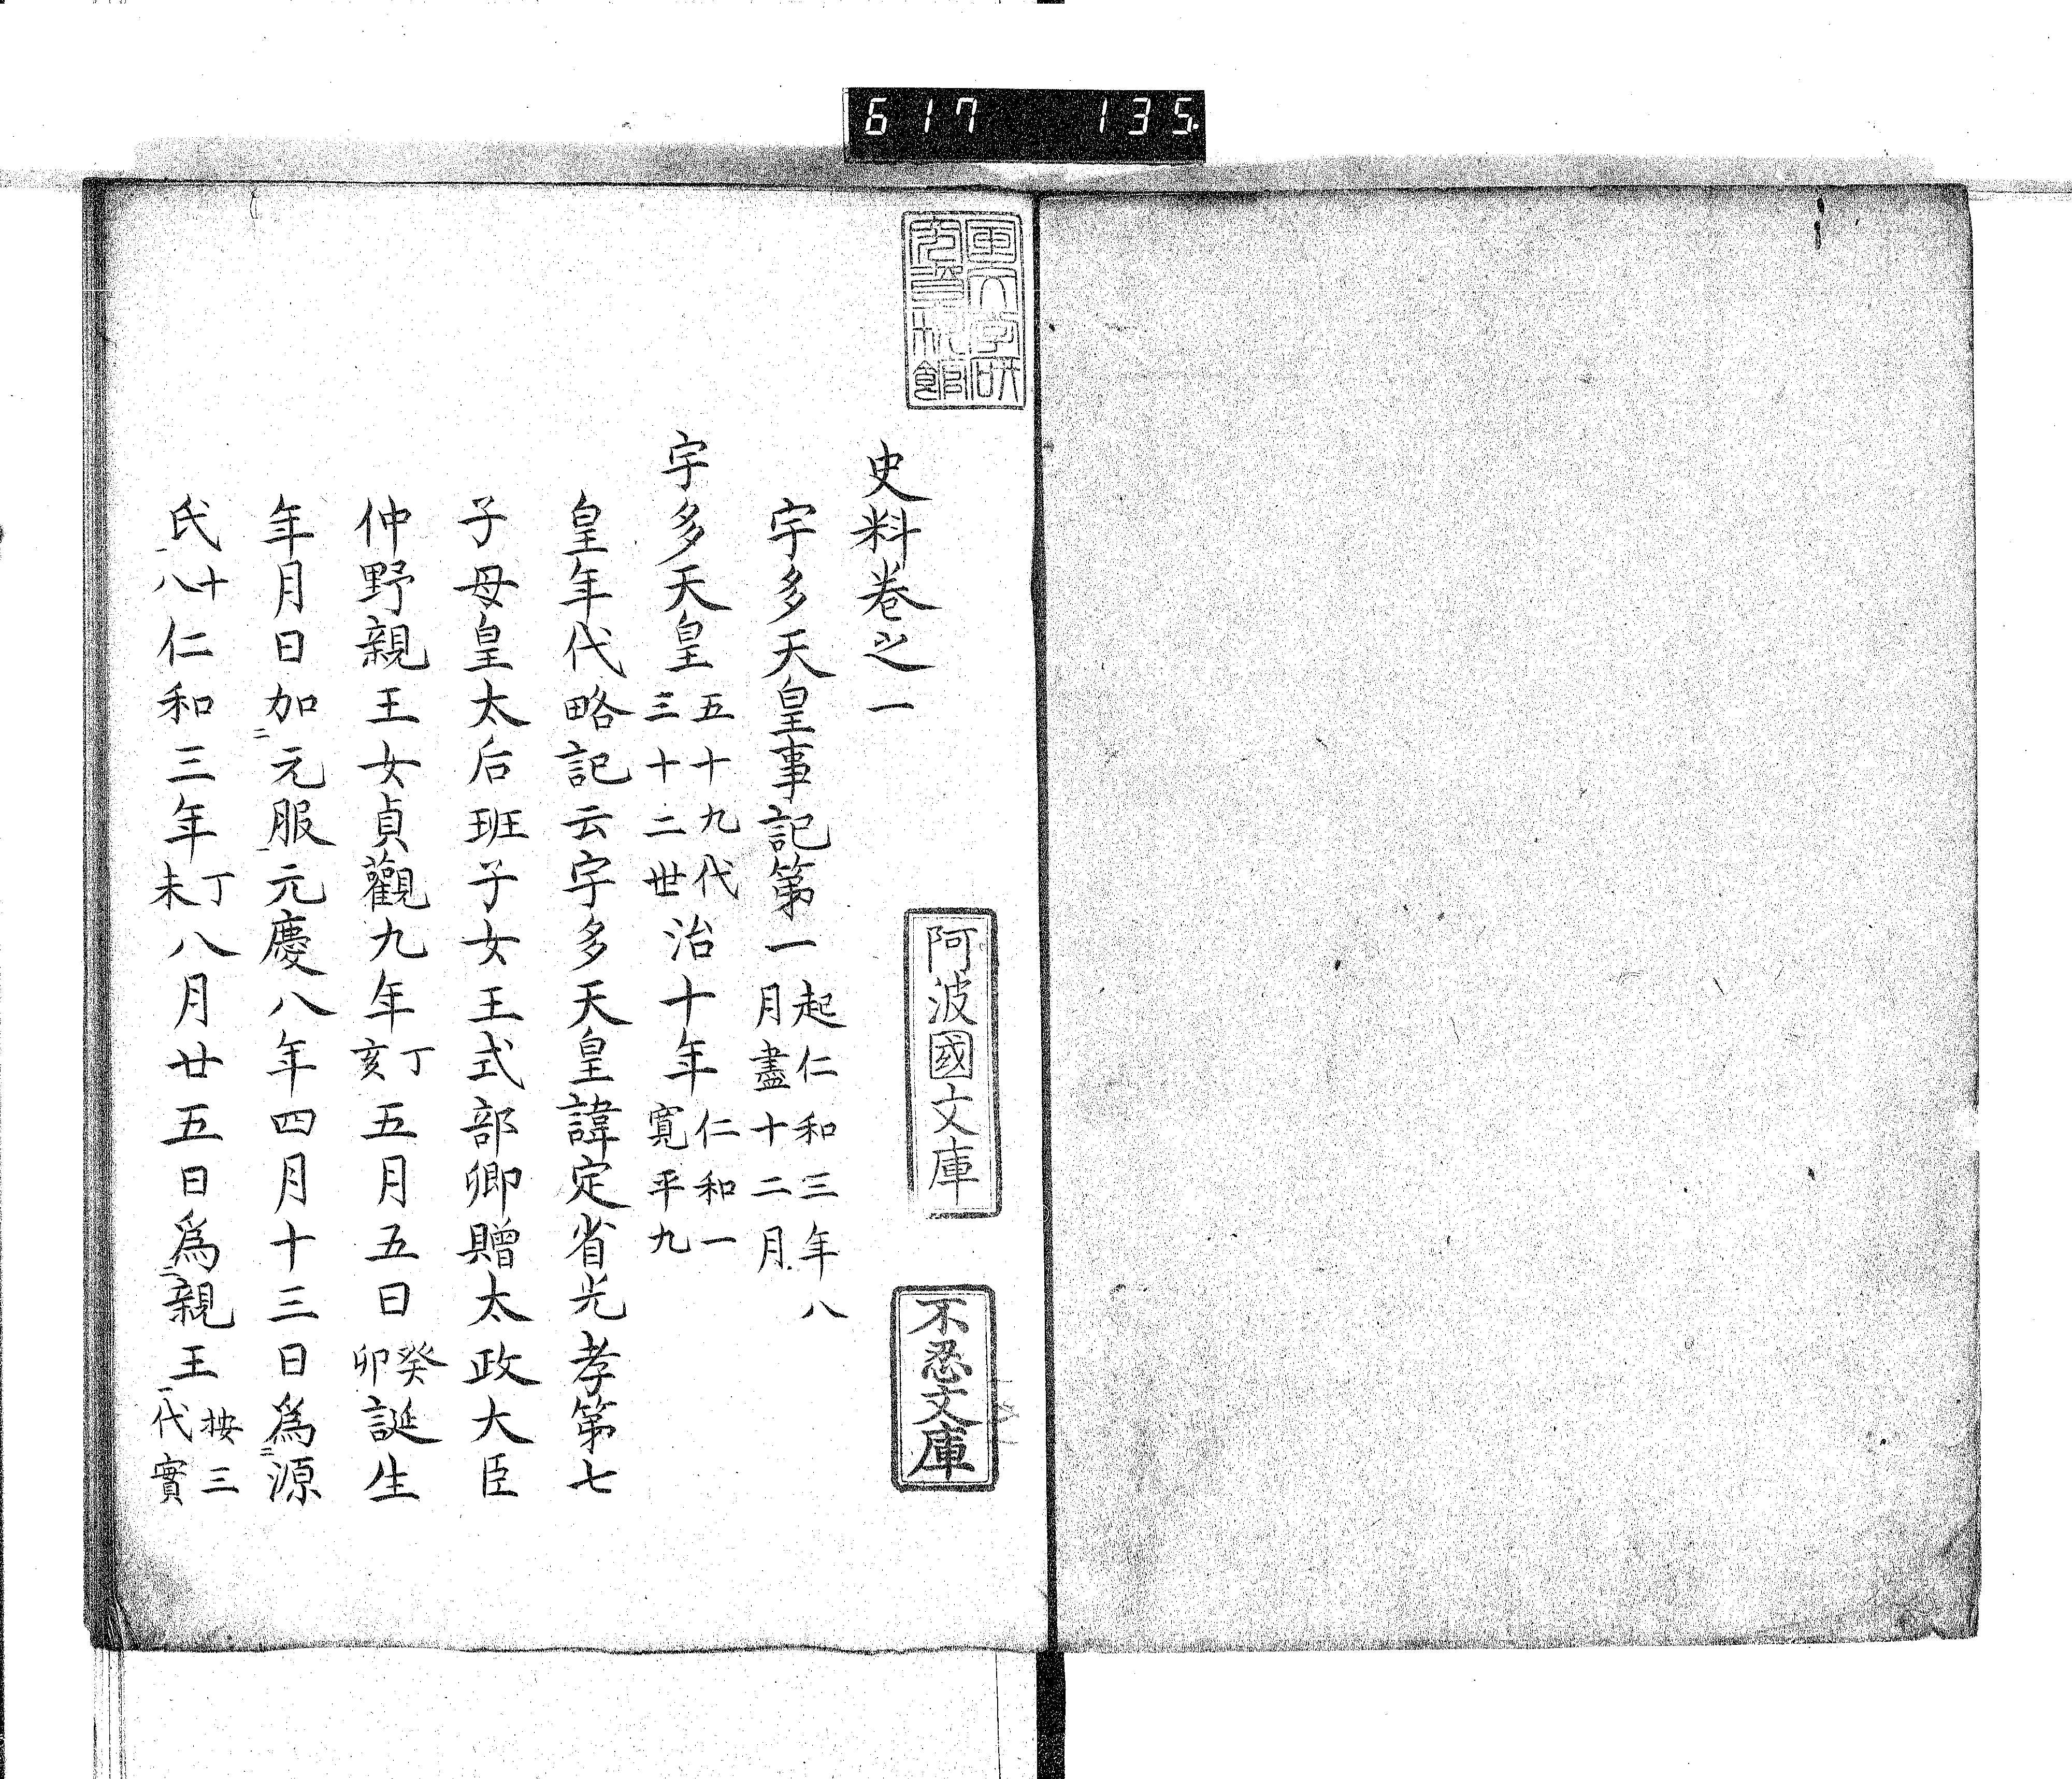 617 135
国文学研
究資料館
阿波國文庫
不忍文庫
史料卷之一
宇多天皇事記第一起仁和三年八月盡十二月
宇多天皇五十九代三十二世治十年仁和一寛平九
皇年代略記云宇多天皇諱定省光孝第七
子母皇太后班子女王式部卿贈太政大臣
仲野親王女貞觀九年丁亥五月五日癸卯誕生
年月日加二元服一元慶八年四月十三日爲二源
氏一十八仁和三年丁未八月廿五日爲二親王一按三代實